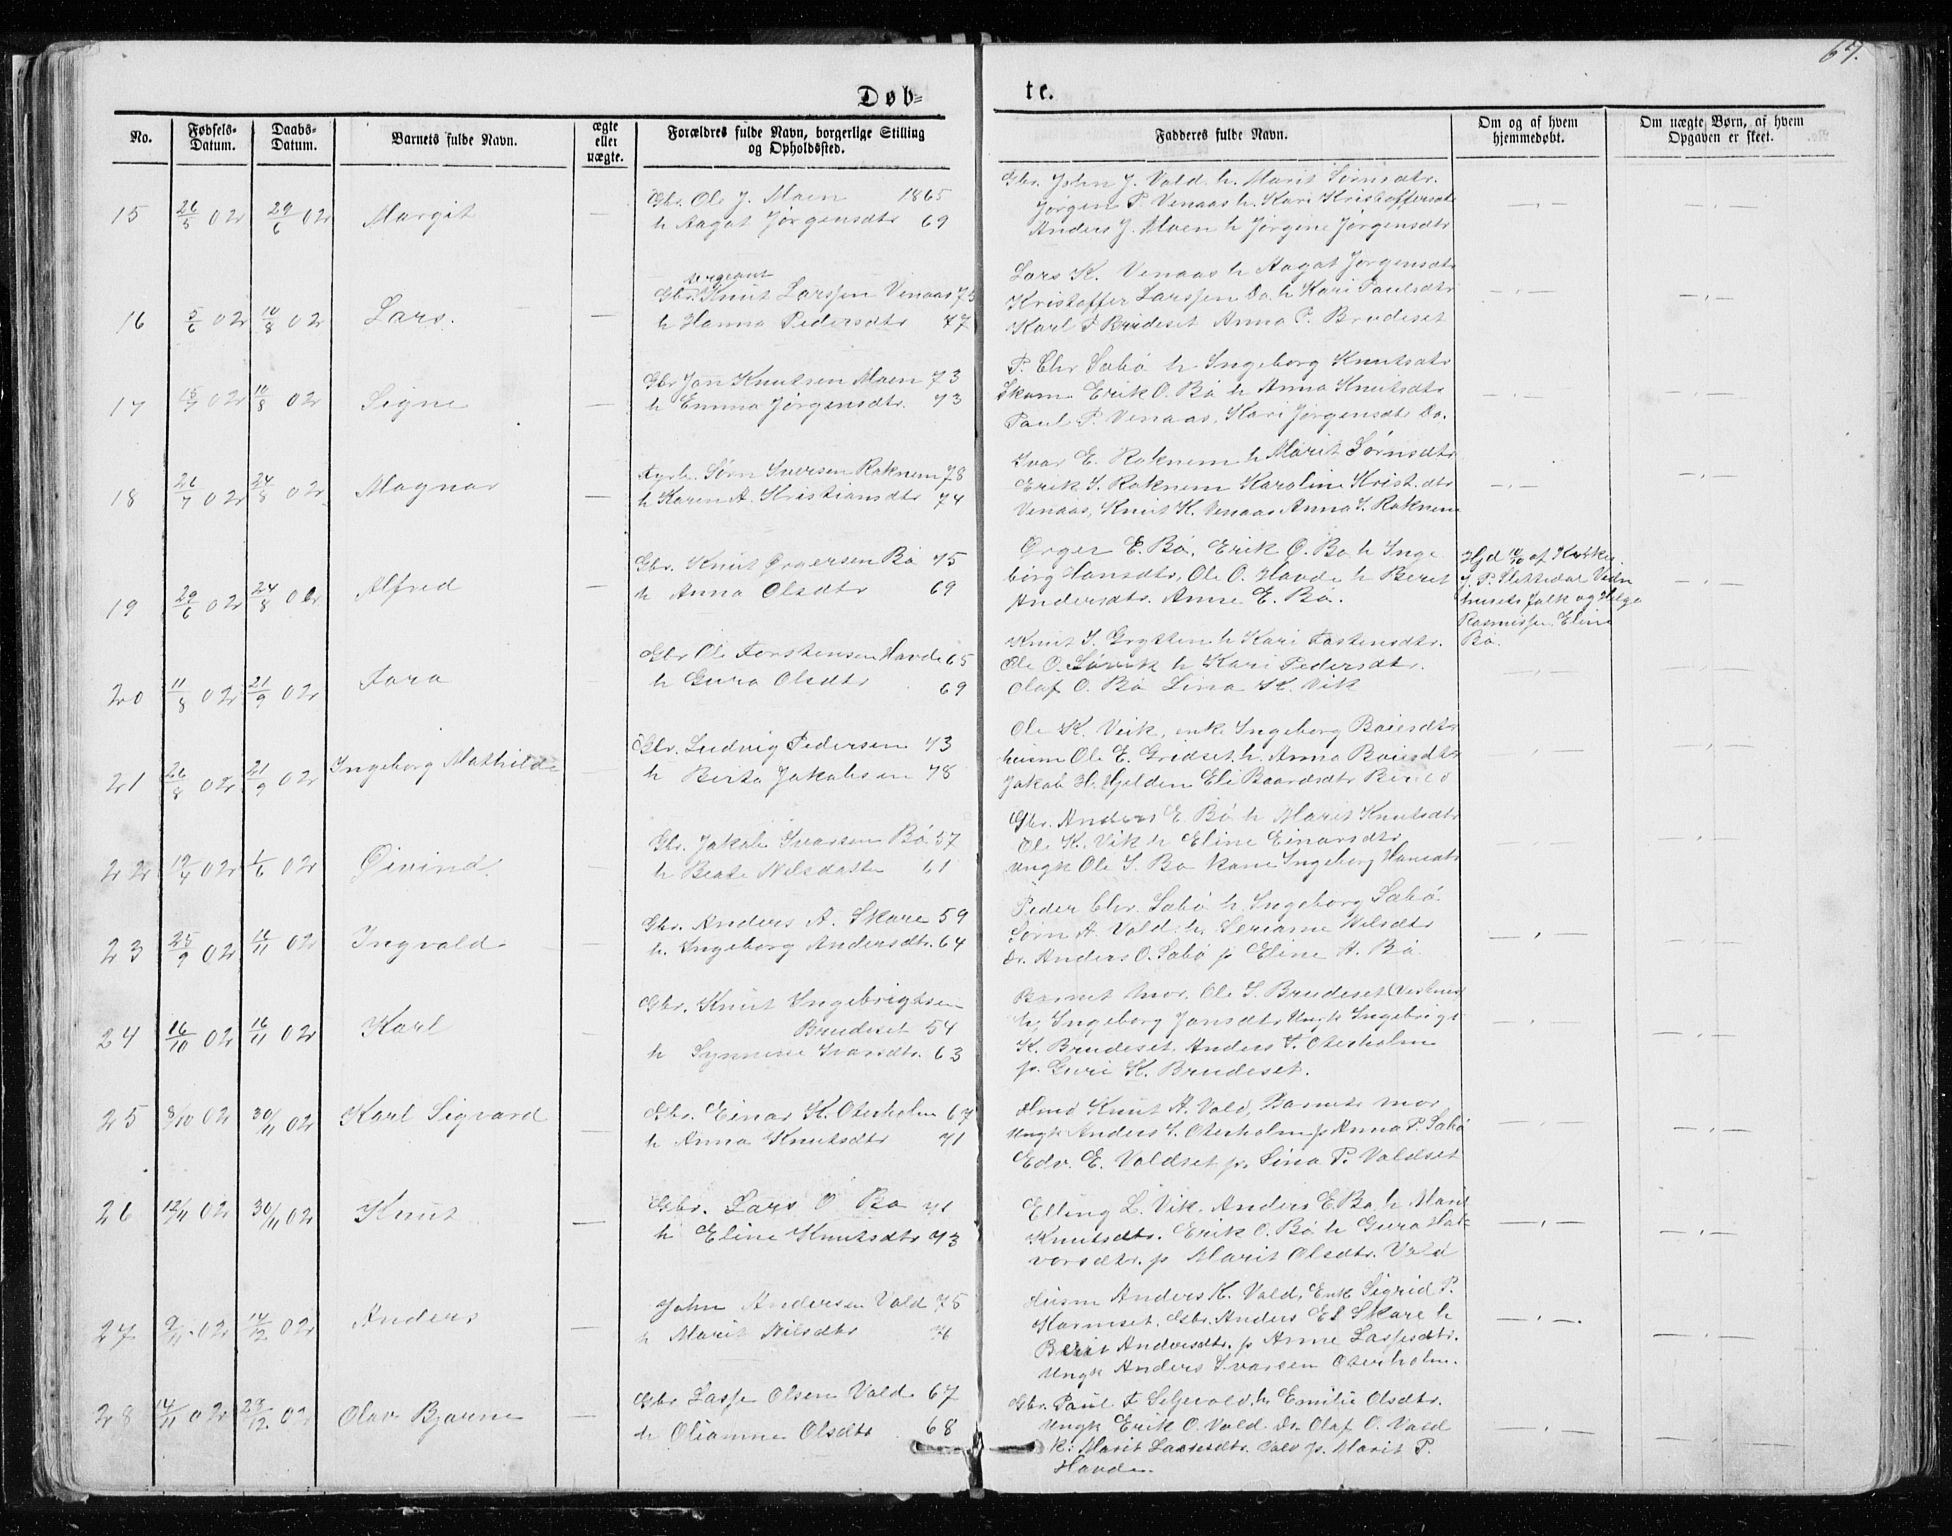 67.
Døb=
te.
No.
Fødsels-
Datum.
Daabs-
Datum.
Barnets fulde Navn.
ægte
eller
uægte.
Forældres fulde Navn, borgerlige Stilling
og Opholdssted.
Fadderes fulde Navn.
Om og af hvem
hjemmedøbt.
Om uægte Børn, af hvem
Opgaven er skeet.
15 26/5 02 29/6 02 Margit —
Gbr. Ole J. Moen 1865
h Aagot Jørgensdtr 69
Gbr. John J. Vold h. Marit Sørnsdtr.
Jørgen P Venaas h. Kari Kristoffersdt
Anders J. Moen h Jørgine Jørgensdtr
16 5/6 02 10/8 02 Lars. —
sergeant
Gbr. Knut Larssen Venaas 75
h Hanna Pedersdtr 77
Lars K. Venaas h Aagot Jørgensdtr
Kristoffer Larssen Do. h Kari Paulsdtr
Karl P Brudeset Anna P. Brudeset
17 15/7 02 10/8 02 Signe —
Gbr Jon Knutsen Moen 73
h Emma Jørgensdtr. 73
P. Chr Sabø h Ingeborg Knutsdtr
Skom. Erik O. Bø h Anna Knutsdtr
Paul P. Venaas, Kari Jørgensdt Do.
18 26/7 02 24/8 02 Magnar —
Fyrb. Sørn Iversen Raknem 78
h Karen A. Kristiansdtr 74
Ivar E. Raknem h Marit Sørnsdtr
Erik I. Raknem Karoline Krist.dtr
Venaas, Knut K. Venaas Anna I. Raknem
19 29/6 02 24/8 02 Alfred —
Gbr. Knut Ørgersen Bø 75
h Anna Olsdtr 69
Ørger E. Bø, Erik O. Bø h Inge
borg Hansdtr, Ole O. Havde h Beret
Andersdtr. Anne E. Bø.
Hjd 10/10 af Kirkes.
J. P. Slettedal Vidn
husets folk og Helga
Rasmussen, Eline
Bø.
20 11/8 02 21/9 02 Tora
Gbr Ole Torstensen Havde 65
h Guro Olsdtr 69
Knut I Grytten h Kari Tostensdtr.
Ole O. Sørvik h Kari Pedersdtr.
Olaf O. Bø Lina K. Vik
21 26/8 02 21/9 02 Ingeborg Mathilde
Gbr. Ludvig Pedersen 73
h Berta Jakobsen 78
Ole K. Vik, enk Ingeborg Boiesdtr
husm Ole E. Gredset h. Anna Boiesdtr
Jakob H. Hjelden Eli Baardsdtr
22 19/4 02 1/6 02 Øivind.
Gbr. Jakob Ivarsen Bø 57
h Beate Nilsdatter 61
Gbr. Anders E. Bø h Marit Knutsdtr
Ole K. Vik h Eline Einarsdtr
Ungk Ole I. Bø kone Ingeborg Hansdtr
23 25/9 02 16/11 02 Ingvald
Gbr. Anders A. Skare 59
h. Ingeborg Andersdtr. 64
Peder Chr. Sabø h Ingeborg Sabø
Sørn A. Vold h. Serianne Nilsdtr
Do. Anders O. Sabø p Eline A. Bø.
24 16/10 02 16/11 02 Karl —
Gbr. Knut Ingebrigtsen
Brudeset 54
h Synneve Ivarsdtr. 63
Barnets mor. Ole I. Brudeset
h, Ingeborg Jonsdtr Ungk Ingebrigt
K. Brudeset. Anders I. Oterholm
p. Guri K. Brudeset.
25 8/10 02 30/11 02 Karl Sigvard —
Gbr. Einar K. Oterholm 67
h Anna Knutsdtr 71
Knut A. Vold, Barnets mor
Ungk Anders I. Oterholm p Anna P. Sabø
Edv. E. Voldset p. Lina P. Voldset
26 12/11 02 30/11 02 Knut —
Gbr. Lars O Bø 71
h Eline Knutsdtr 73
Elling L. Vik. Anders E. Bø h Marit
Knutsdtr. Erik O. Bø h Guro Hal-
vorsdtr. p Marit Olsdtr. Vold
27 9/11 02 14/12 02 Anders —
John Andersen Vold 75
h Marit Nilsdtr
Husm Anders K. Vold, Enk Sigrid P.
Harmset. Gbr. Anders El Skare h
Berit Andersdtr. p Anne Lassesdtr.
Ungk Anders Ivarsen Oterholm.
28 14/11 02 29/12 02 Olav Bjarne —
Gbr Lasse Olsen Vold 67
h Olianne Olsdtr 68
Gbr. Paul h Emilie Olsdtr.
Ungk Erik O. Vold Do Olaf O. Vold
k. Marit Lassesdtr. Vold p. Marit P.
Havde.